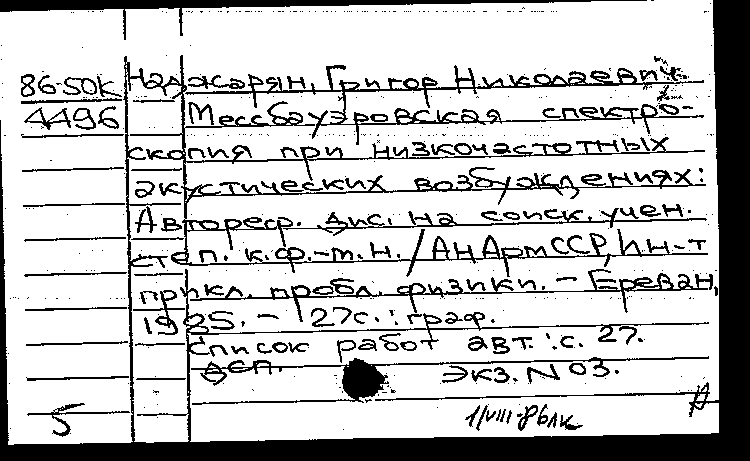 86-50К Наджарян, Григор Николаевич
4496 Мессбауэровская спектро-
скопия при низкочастотных
акустических возбуждениях:
Автореф. дис. на соиск. учен.
степ. к.ф.-м.н. / АН АрмССР, Ин-т
прикл. пробл. физики. - Ереван,
1985. - 27с. : граф.
Список работ авт.: с. 27.
Дсп. Экз. N 03.
5 1/VIII-86